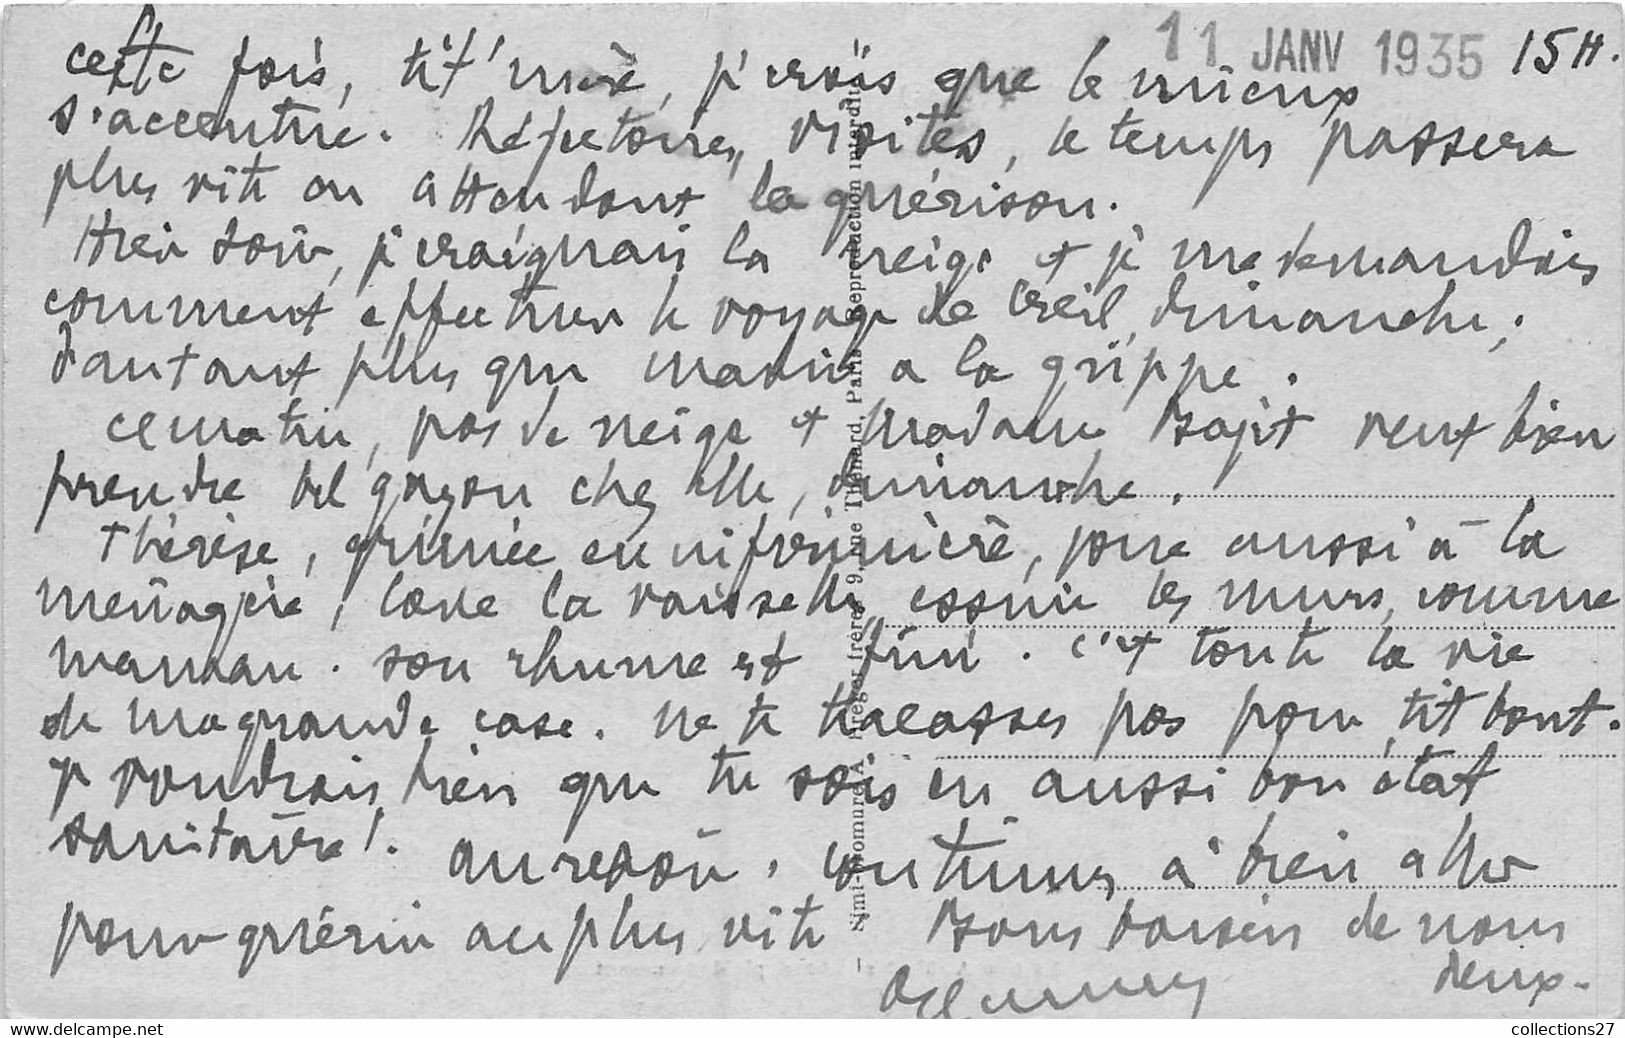 11 JANV 1935 15 H.
cette fois, tit' mère, j'crois que le mieux
s'accentue. Répétoires, visites, le temps passera
plus vite en attendant la guérison.
Hier soir, je craignais la neige et je me demandais
comment effectuer le voyage de Creil, dimanche,
d'autant plus que mamie a la grippe.
Ce matin, pas de neige et Madame veut bien
prendre bel garçon chez elle, dimanche.
Thérèse, grimée en infirmière, joue aussi à la
ménagère, lave la vaisselle, essuie les murs, comme
maman. Son rhume est fini. C'est toute la vie
de ma grande case. Ne te tracasses pas pour tit bout.
Je voudrais bien que tu sois en aussi bon état
sanitaire!. Au revoir, continues à bien aller
pour guérir au plus vite Bons baisers de nous
deux.
Simi-Bromure A. Breger frères 9, rue Thénard, Paris Reproduction interdite
www.delcampe.net
collections27